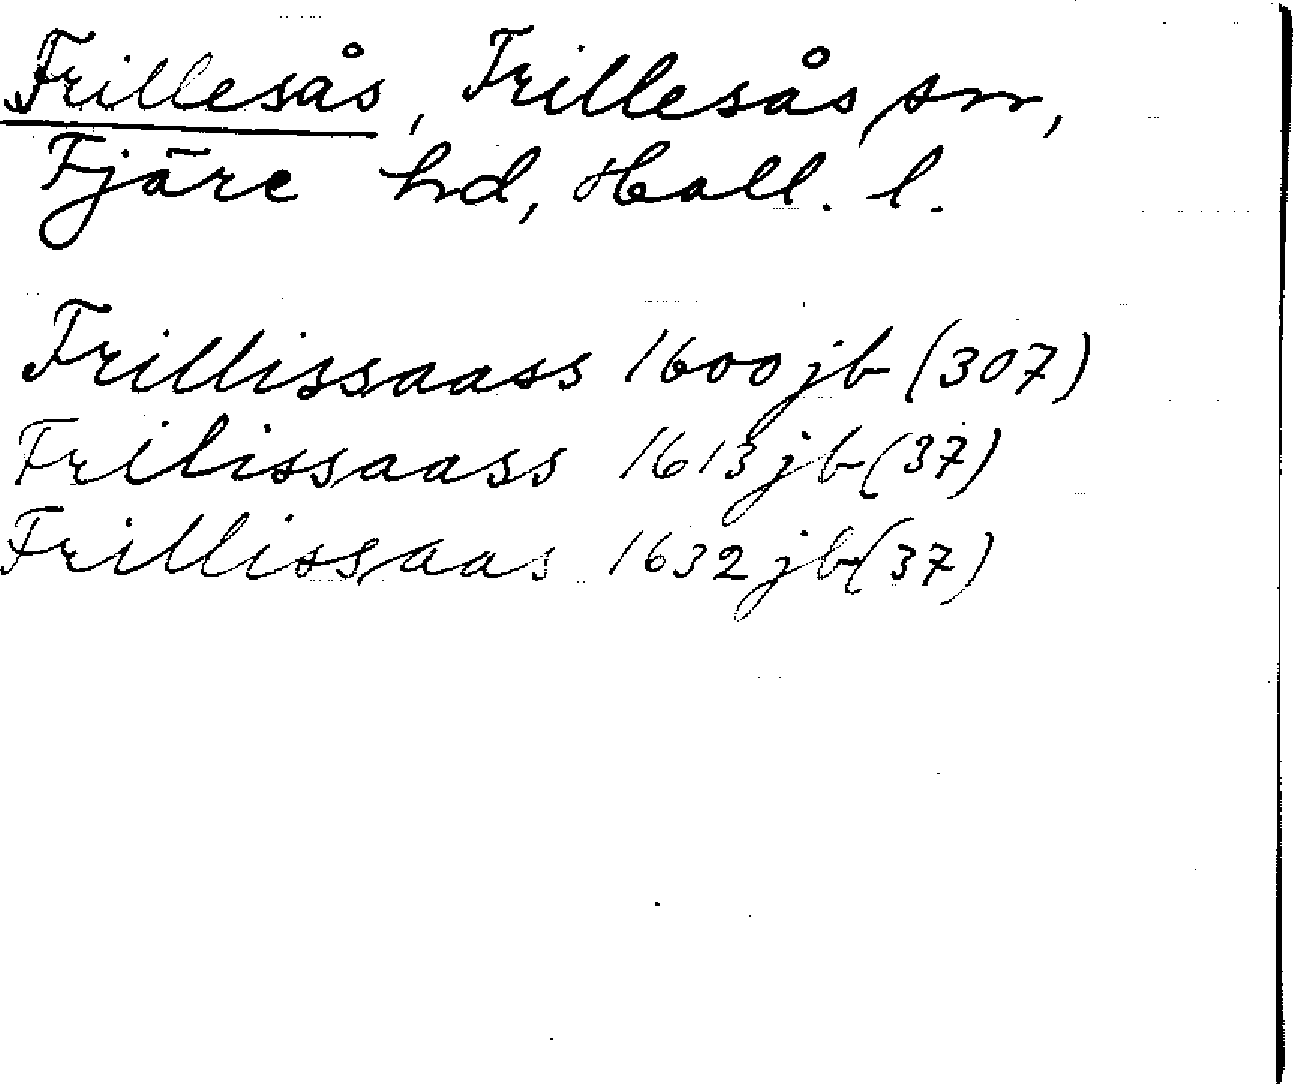 Frillesås, Frillesås sn,
Fjäre hd, Hall. l.
Frillissaass 1600 jb (307)
Frilissaass 1613 jb (37)
Frillissaas 1632 jb (37)